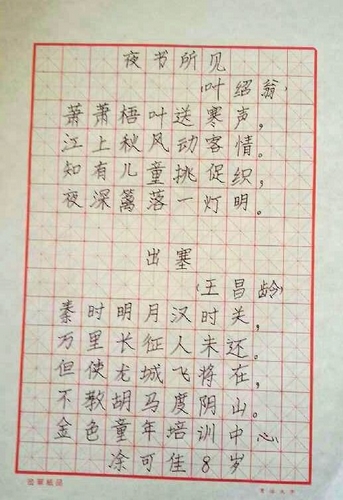 夜书所见
(叶绍翁)
萧萧梧叶送寒声，
江上秋风动客情。
知有儿童挑促织，
夜深篱落一灯明。
出塞
(王昌龄)
秦时明月汉时关，
万里长征人未还。
但使龙城飞将在，
不教胡马度阴山。
金色童年培训中心
涂可佳8岁